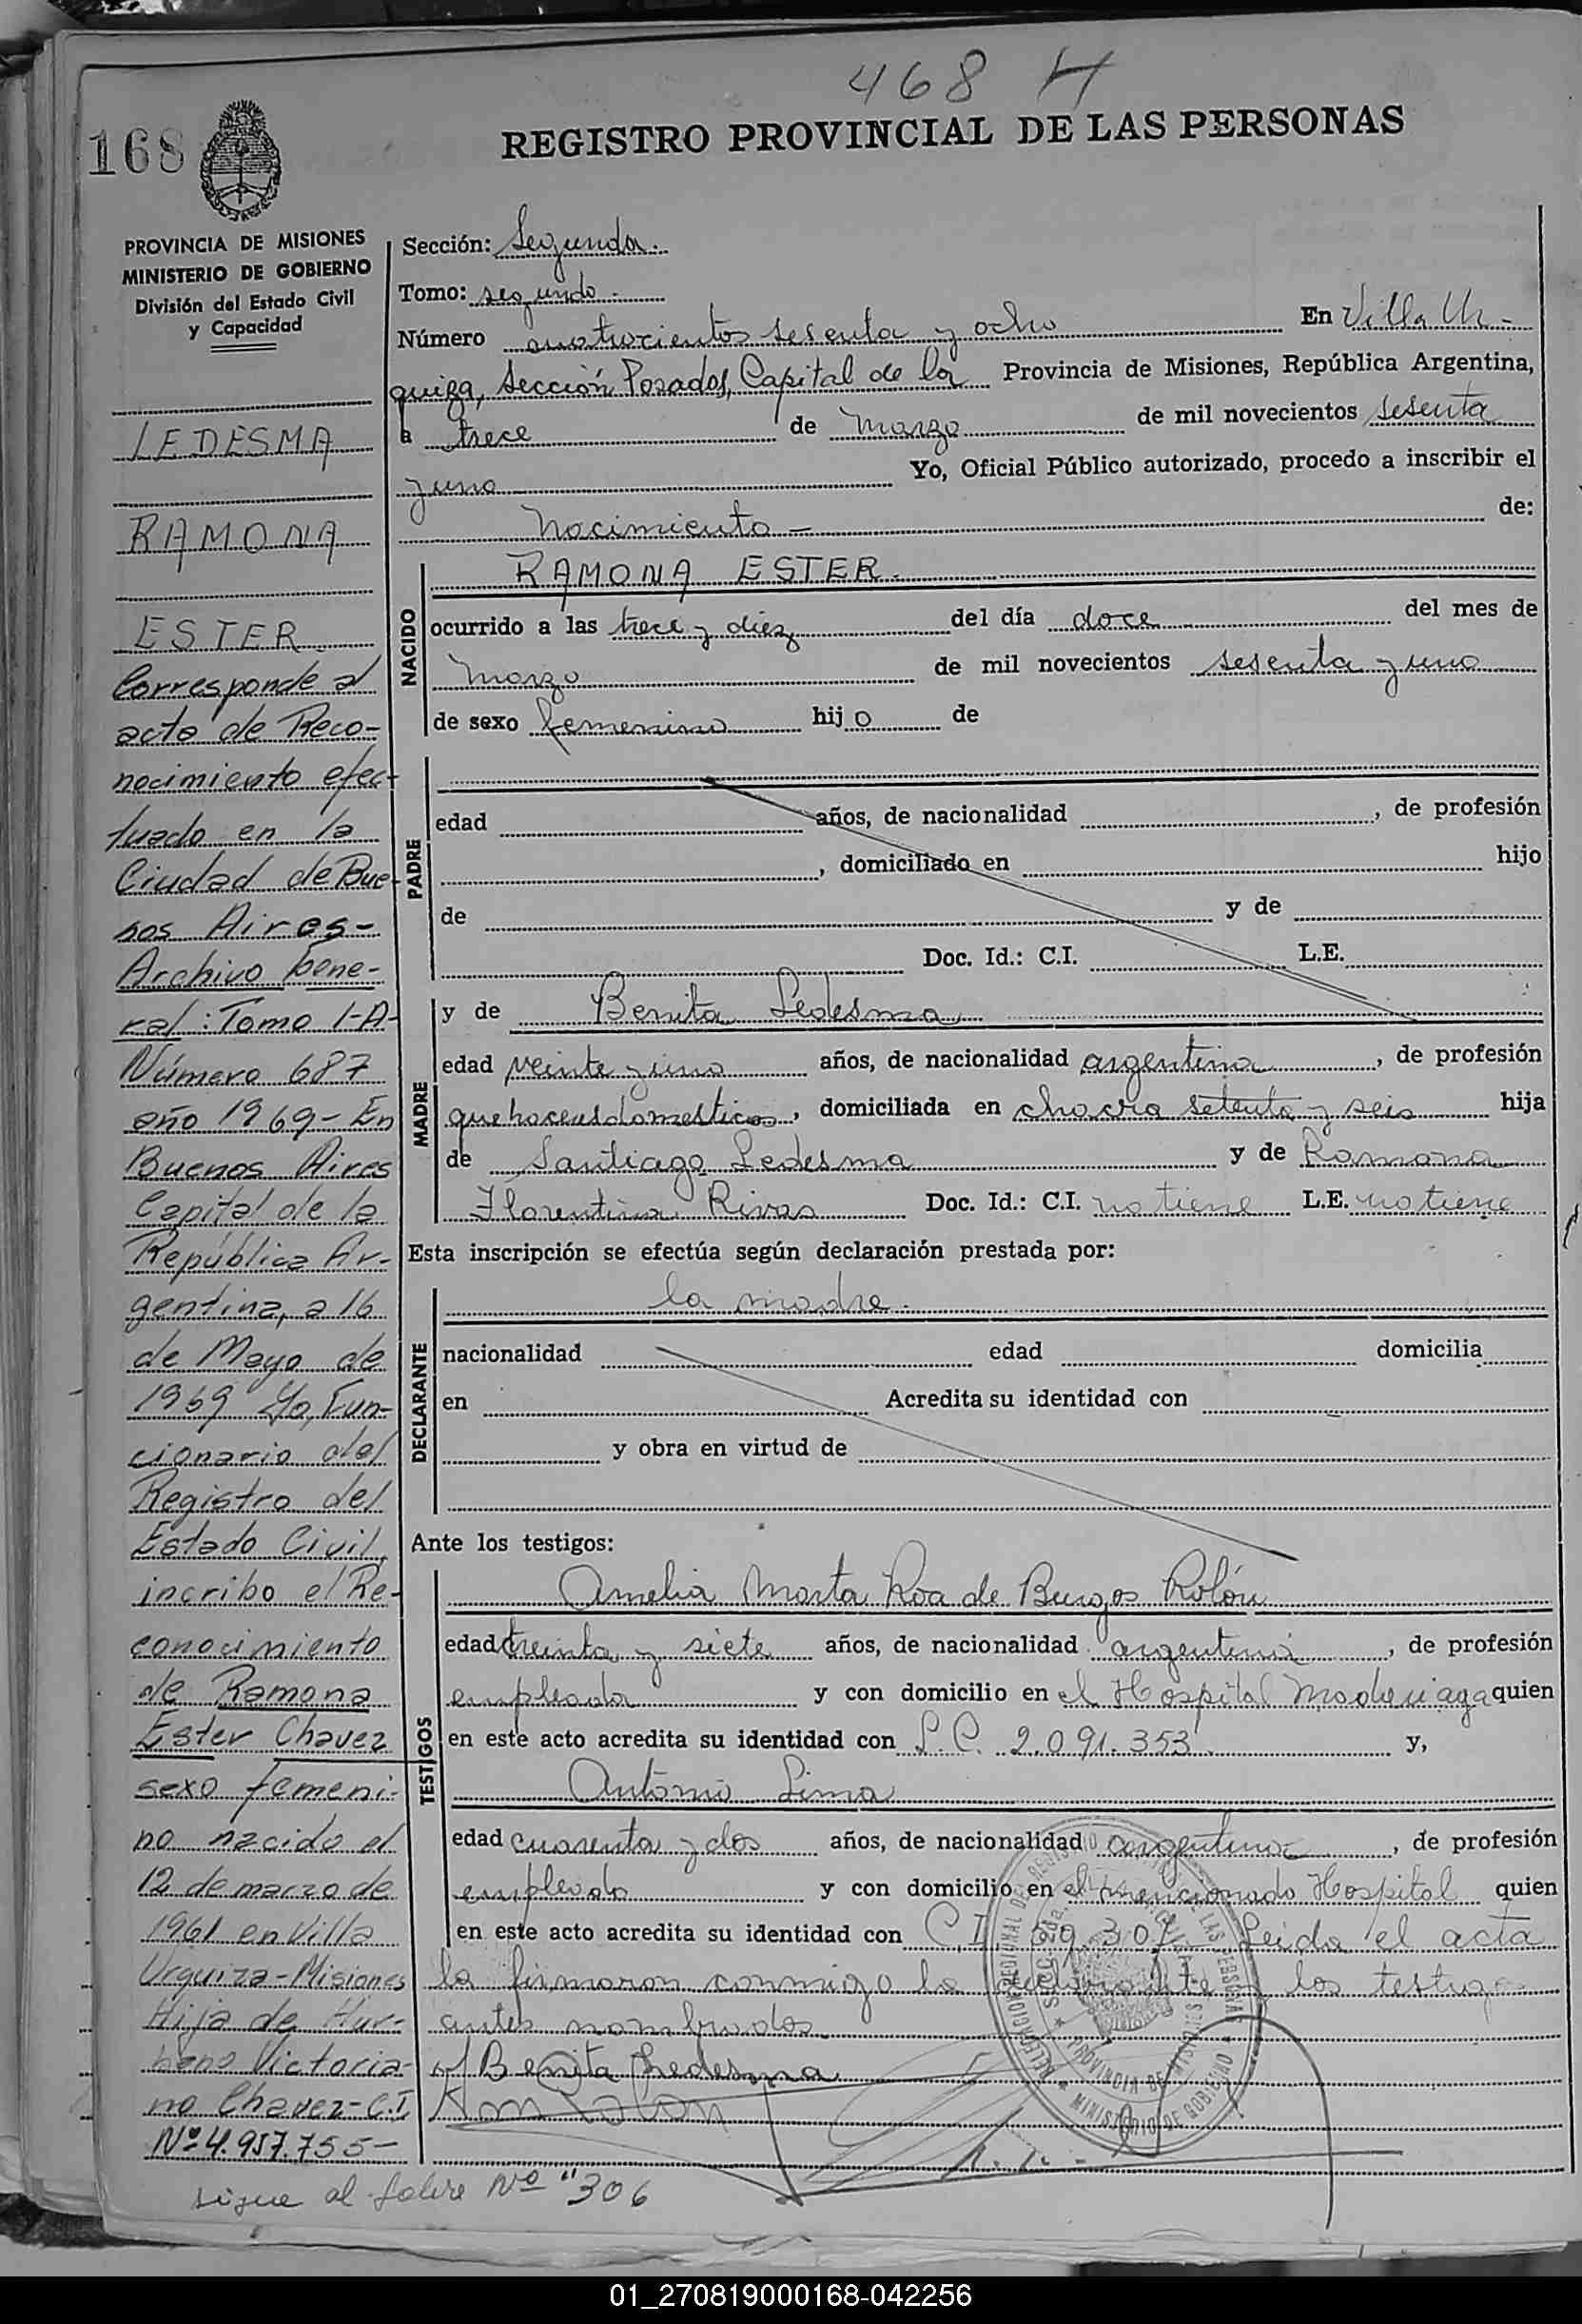 468 H
168
REGISTRO PROVINCIAL DE LAS PERSONAS
PROVINCIA DE MISIONES
MINISTERIO DE GOBIERNO
División del Estado Civil
y Capacidad
LEDESMA
RAMONA
ESTER
Corresponde al
acta de Reco-
nocimiento efec-
tuado en la
Ciudad de Bue-
nos Aires-
Archivo Gene-
ral: Tomo 1-A-
Número 687
año 1969- En
Buenos Aires
Capital de la
República Ar-
gentina, a 16
de Mayo de
1969 Yo, Fun-
cionario del
Registro del
Estado Civil,
incribo el Re-
conocimiento
de Ramona
Ester Chavez
sexo femeni-
no nacido el
12 de marzo de
1961 en Villa
Urquiza-Misiones
Hija de
Victoria-
no Chavez-C.I.
Nº 4.957.755-
sigue al Nº "306
Sección: Segunda.
Tomo: segundo.
Número cuatrocientos sesenta y ocho En Villa Ur-
quiza, Sección Posadas, Capital de la Provincia de Misiones, República Argentina,
a trece de marzo de mil novecientos sesenta
y uno Yo, Oficial Público autorizado, procedo a inscribir el
nacimiento - de:
NACIDO
RAMONA ESTER.
ocurrido a las trece y diez del día doce del mes de
marzo de mil novecientos sesenta y uno
de sexo femenino hijo de
PADRE
edad años, de nacionalidad , de profesión
, domiciliado en hijo
de y de
Doc. Id.: C.I. L.E.
MADRE
y de Benita Ledesma
edad veinte y uno años, de nacionalidad argentina, de profesión
quehaceres domesticos, domiciliada en chacra setenta y seis hija
de Santiago Ledesma y de Ramona
Florentina Rivas Doc. Id.: C.I. no tiene L.E. no tiene
Esta inscripción se efectúa según declaración prestada por:
DECLARANTE
la madre.
nacionalidad edad domicilia
en Acredita su identidad con
y obra en virtud de
Ante los testigos:
TESTIGOS
Amelia Marta Roa de Burgos Rolón
edad treinta y siete años, de nacionalidad argentina, de profesión
empleada y con domicilio en el Hospital Madariaga quien
en este acto acredita su identidad con L.C. 2.091.353 y,
Antonio Lima
edad cuarenta y dos años, de nacionalidad argentina, de profesión
empleado y con domicilio en el mencionado Hospital quien
en este acto acredita su identidad con C.I. Leida el acta
la firmaron conmigo la declarante y los testigos
antes nombrados
Benita Ledesma
PROVINCIA DE MISIONES
MINISTERIO DE GOBIERNO
01_270819000168-042256